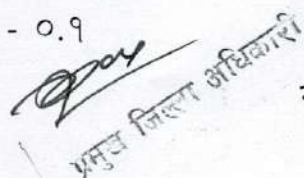 - 0.9
प्रमुख जिल्ला अधिकारी